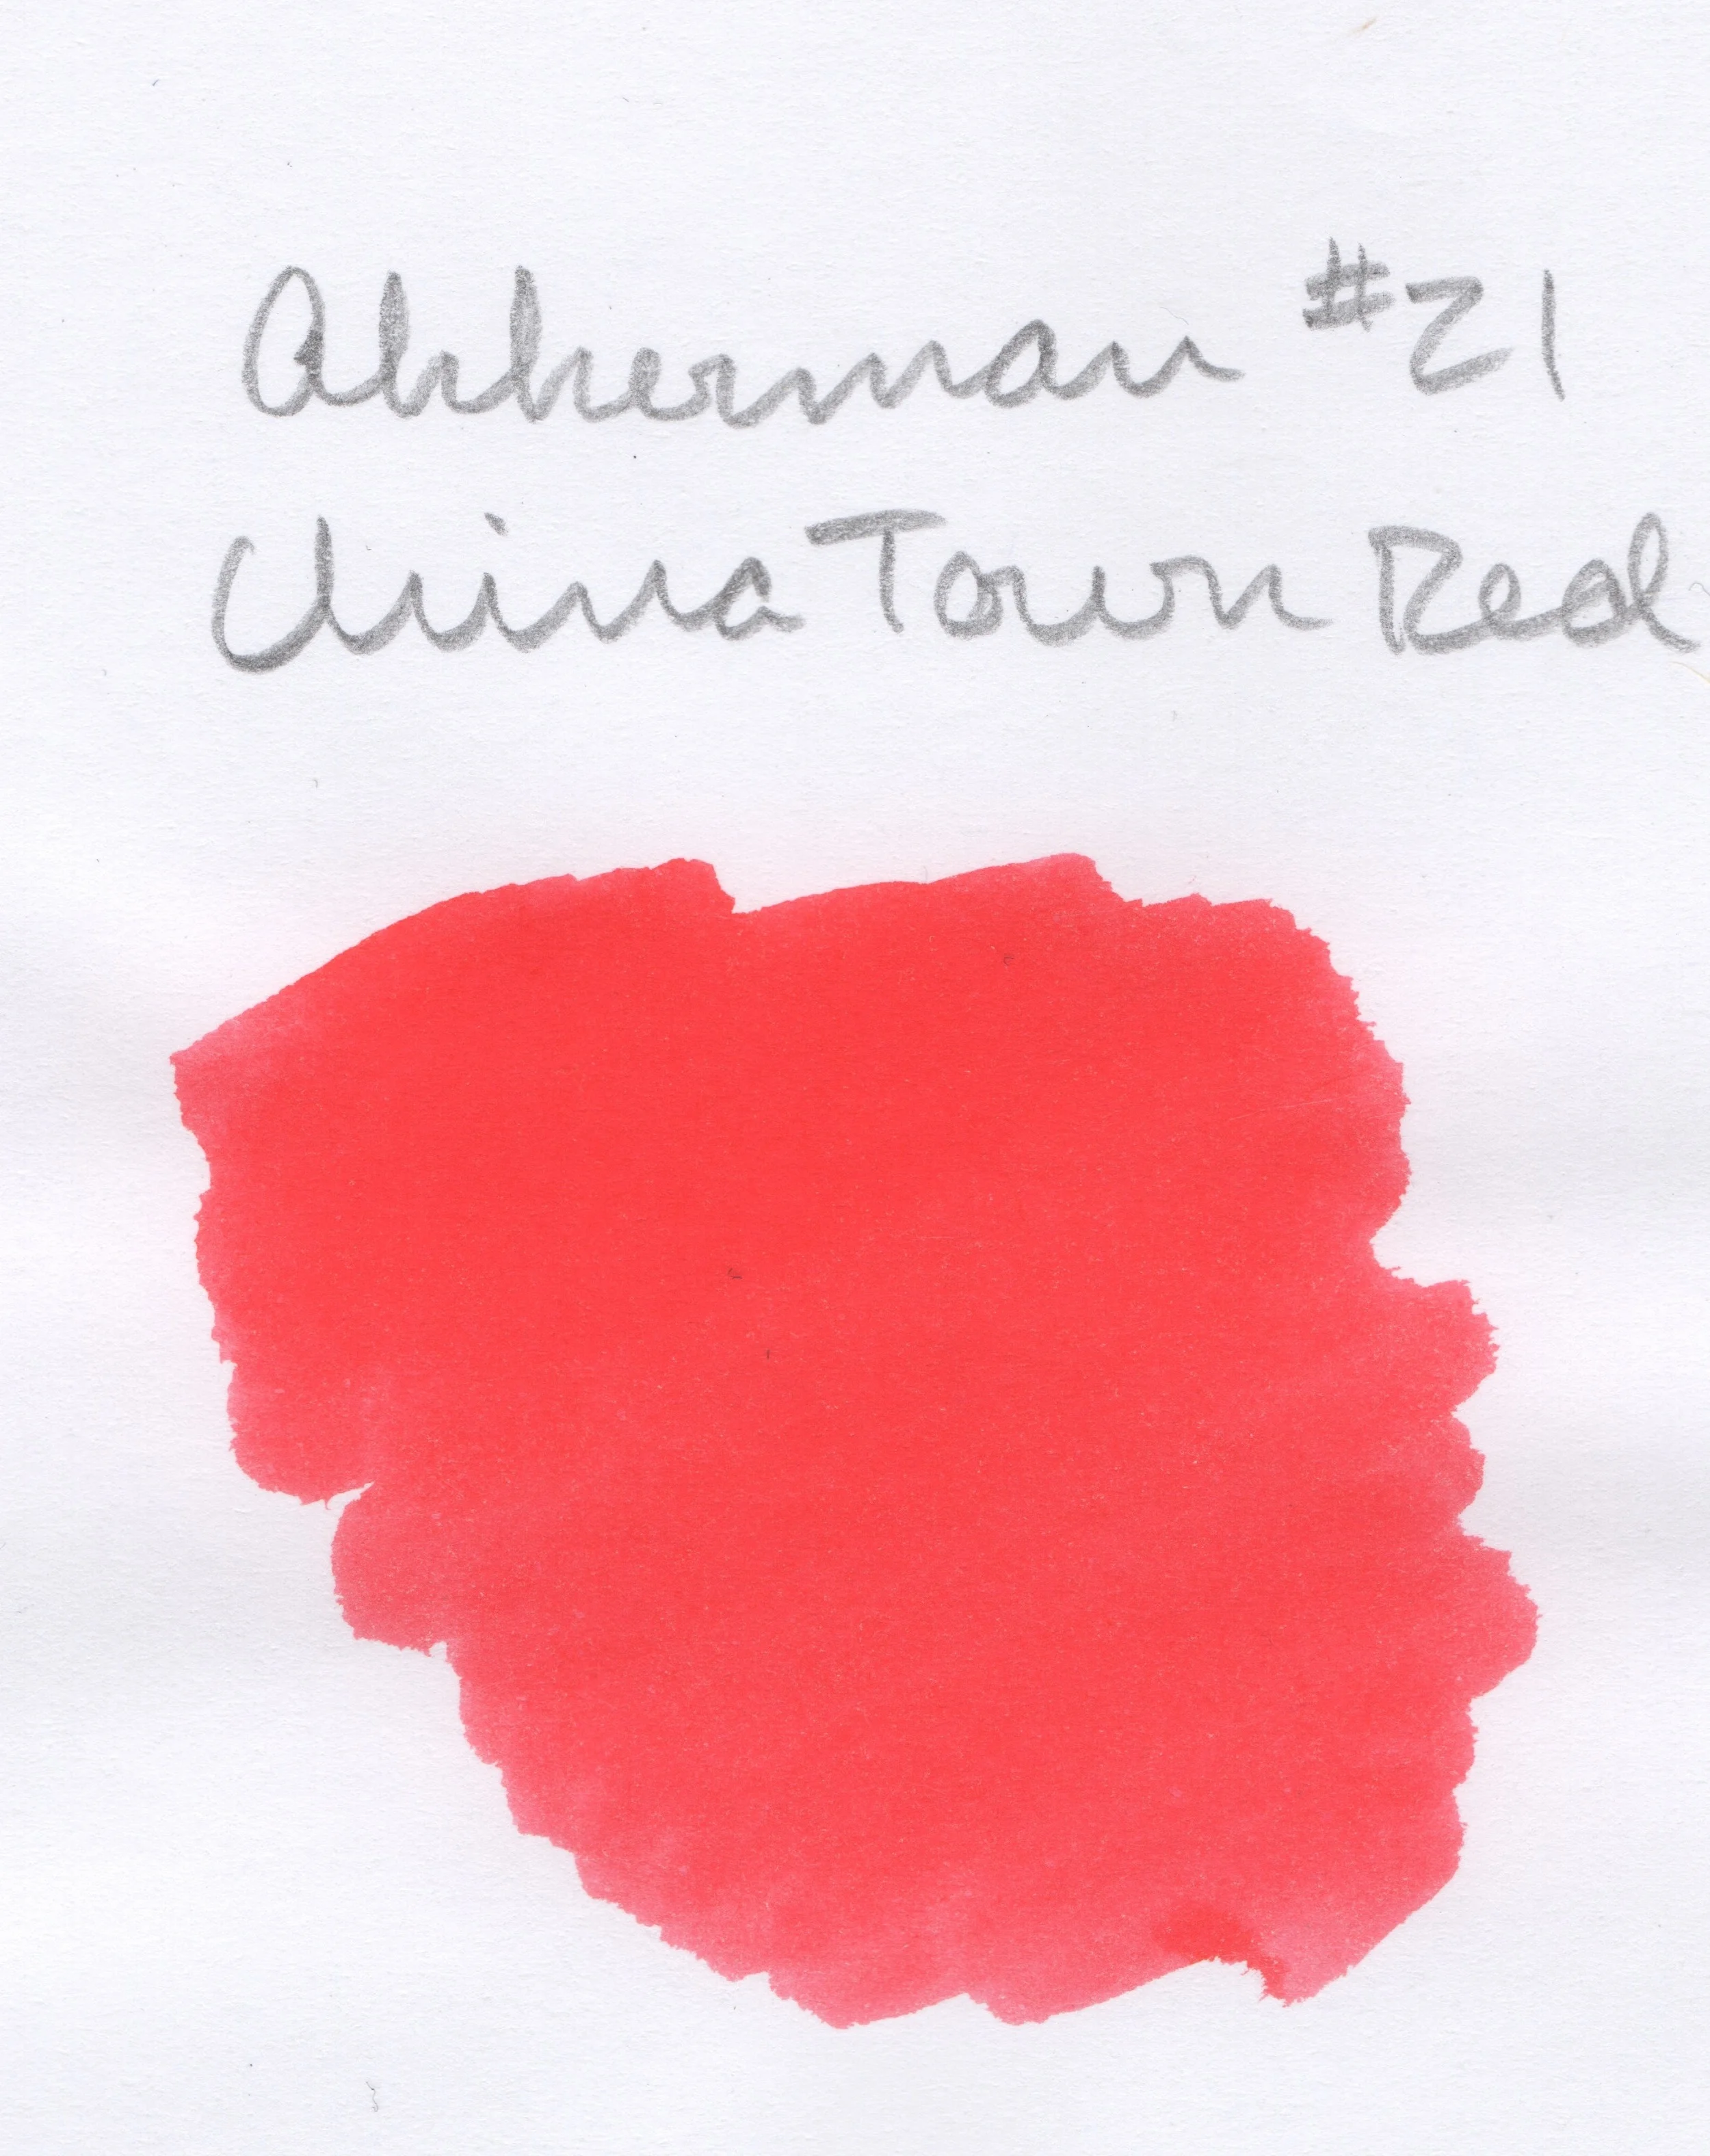 Akkerman #21
China Town Red